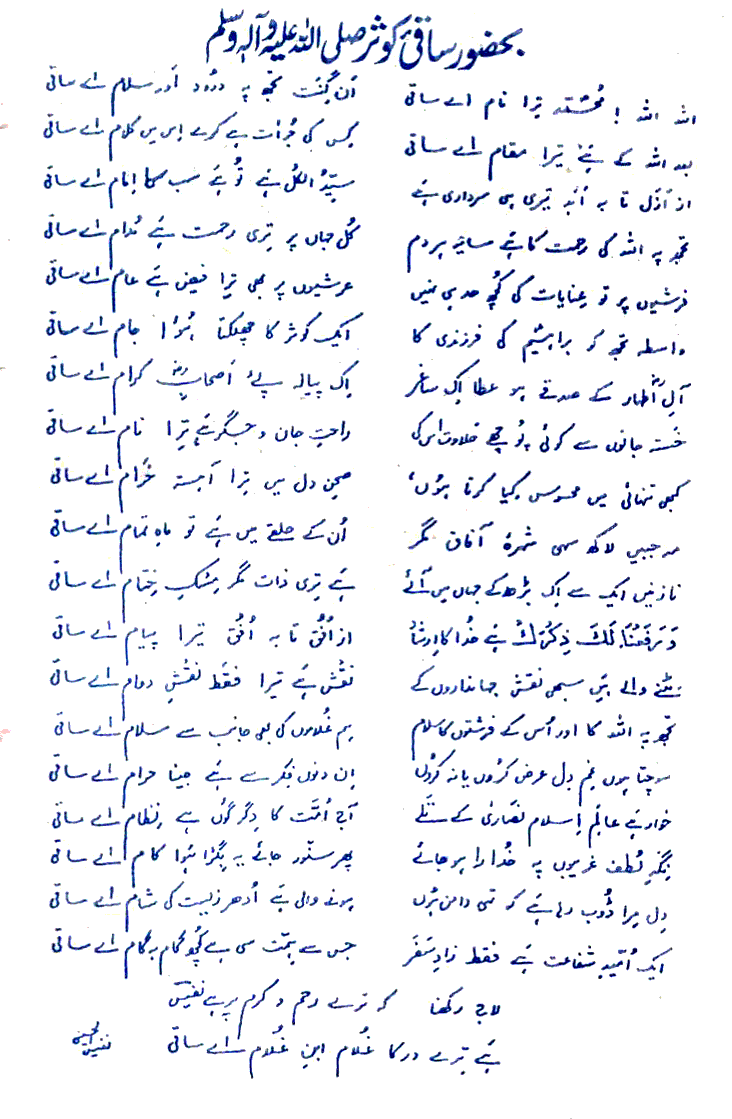 بحضور ساقیٔ کوثر صلی اللہ علیہ وآلہ وسلم
اللہ اللہ! محمّد ترا نام اے ساقی
اَن گِنَت تجھ پہ درُود اَور سلام اے ساقی
بعد اللہ کے ہَے تیرا مقام اے ساقی
کِس کی جُرأت ہے کرے اِس میں کلام اے ساقی
از اَزَل تا بہ اَبَد تیری ہی سرداری ہَے
سیّدُ الکل ہَے تُو ہَے سب کا اِمام اے ساقی
تجھ پہ اللہ کی رحمت کا ہَے سایہ ہر دم
کُل جہاں پر تِری رحمت ہَے مُدام اے ساقی
فرشیوں پر تو عِنایات کی کُچھ حد ہی نہیں
عرشیوں پر بھی تِرا فیض ہَے عام اے ساقی
واسطہ تجھ کو براہیمؑ کی فرزندی کا
ایک کوثر کا چھلکتا ہُوا جام اے ساقی
آلِ اَطہار کے صدقے ہو عطا اِک ساغر
اِک پیالہ پئے اَصحابِ کرام اے ساقی
خستہ جانوں سے کوئی پُوچھے حلاوت اس کی
راحتِ جان و جگر ہَے تِرا نام اے ساقی
کبھی تنہائی میں محسوس کِیا کرتا ہُوں،
صحنِ دل میں تِرا آہستہ خَرام اے ساقی
مہ جبیں لاکھ سہی شہرۂ آفاق مگر
اُن کے حلقے میں ہَے تو ماہِ تمام اے ساقی
نازنیں ایک سے اِک بڑھ کے جہاں میں آئے
ہَے تِری ذات مگر مِشکِ خِتام اے ساقی
وَرَفَعْنَا لَكَ ذِکْرَكْ ہَے خُدا کا اِرشاد
از اُفُق تا بہ اُفُق تیرا پیام اے ساقی
مِٹنے والے ہَیں سبھی نقش جہانداروں کے
نقش ہَے تیرا فقط نقشِ دوام اے ساقی
تجھ پہ اللہ کا اور اُس کے فرشتوں کا سلام
ہم غُلاموں کی بھی جانب سے سلام اے ساقی
سوچتا ہوں غمِ دِل عرض کرُوں یا نہ کرُوں
اِن دنوں فِکر سے ہَے جینا حرام اے ساقی
خوار ہَے عالمِ اِسلام نصاریٰ کے تلے
آج اُمّت کا دِگرگُوں ہے نِظام اے ساقی
نِگہِ لُطف غریبوں پہ خُدارا ہو جائے
پھر سنور جائے یہ بِگڑا ہُوا کام اے ساقی
دِل مِرا ڈُوب رہا ہَے کہ تہی دامن ہُوں
ہونے والی ہَے اُدھر زیست کی شام اے ساقی
ایک اُمّیدِ شفاعت ہَے فقط زادِ سَفَر
جس سے ہِمّت سی ہے کُچھ گام بہ گام اے ساقی
لاج رکھنا کہ ترے رحم و کرم پر ہے نفیسؔ
ہَے تِرے در کا غُلام ابنِ غُلام اے ساقی
نفیس الحسینی